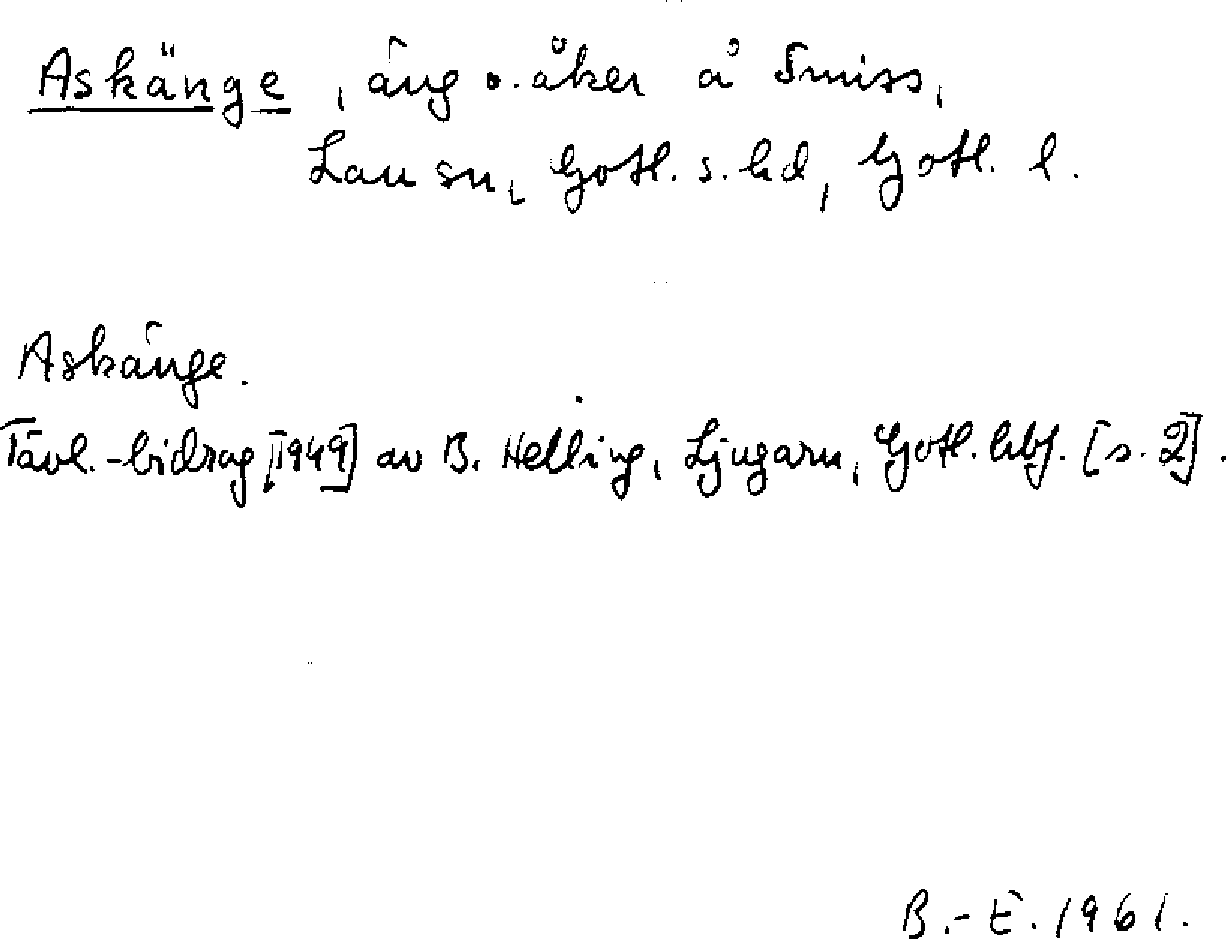 Askänge, äng o. åker å Smiss,
Lau sn, Gotl. s. hd, Gotl. l.
Askänge.
Tävl.-bidrag [1949] av B. Helling, Ljugarn, Gotl. hbf. [s. 2].
B.-E. 1961.